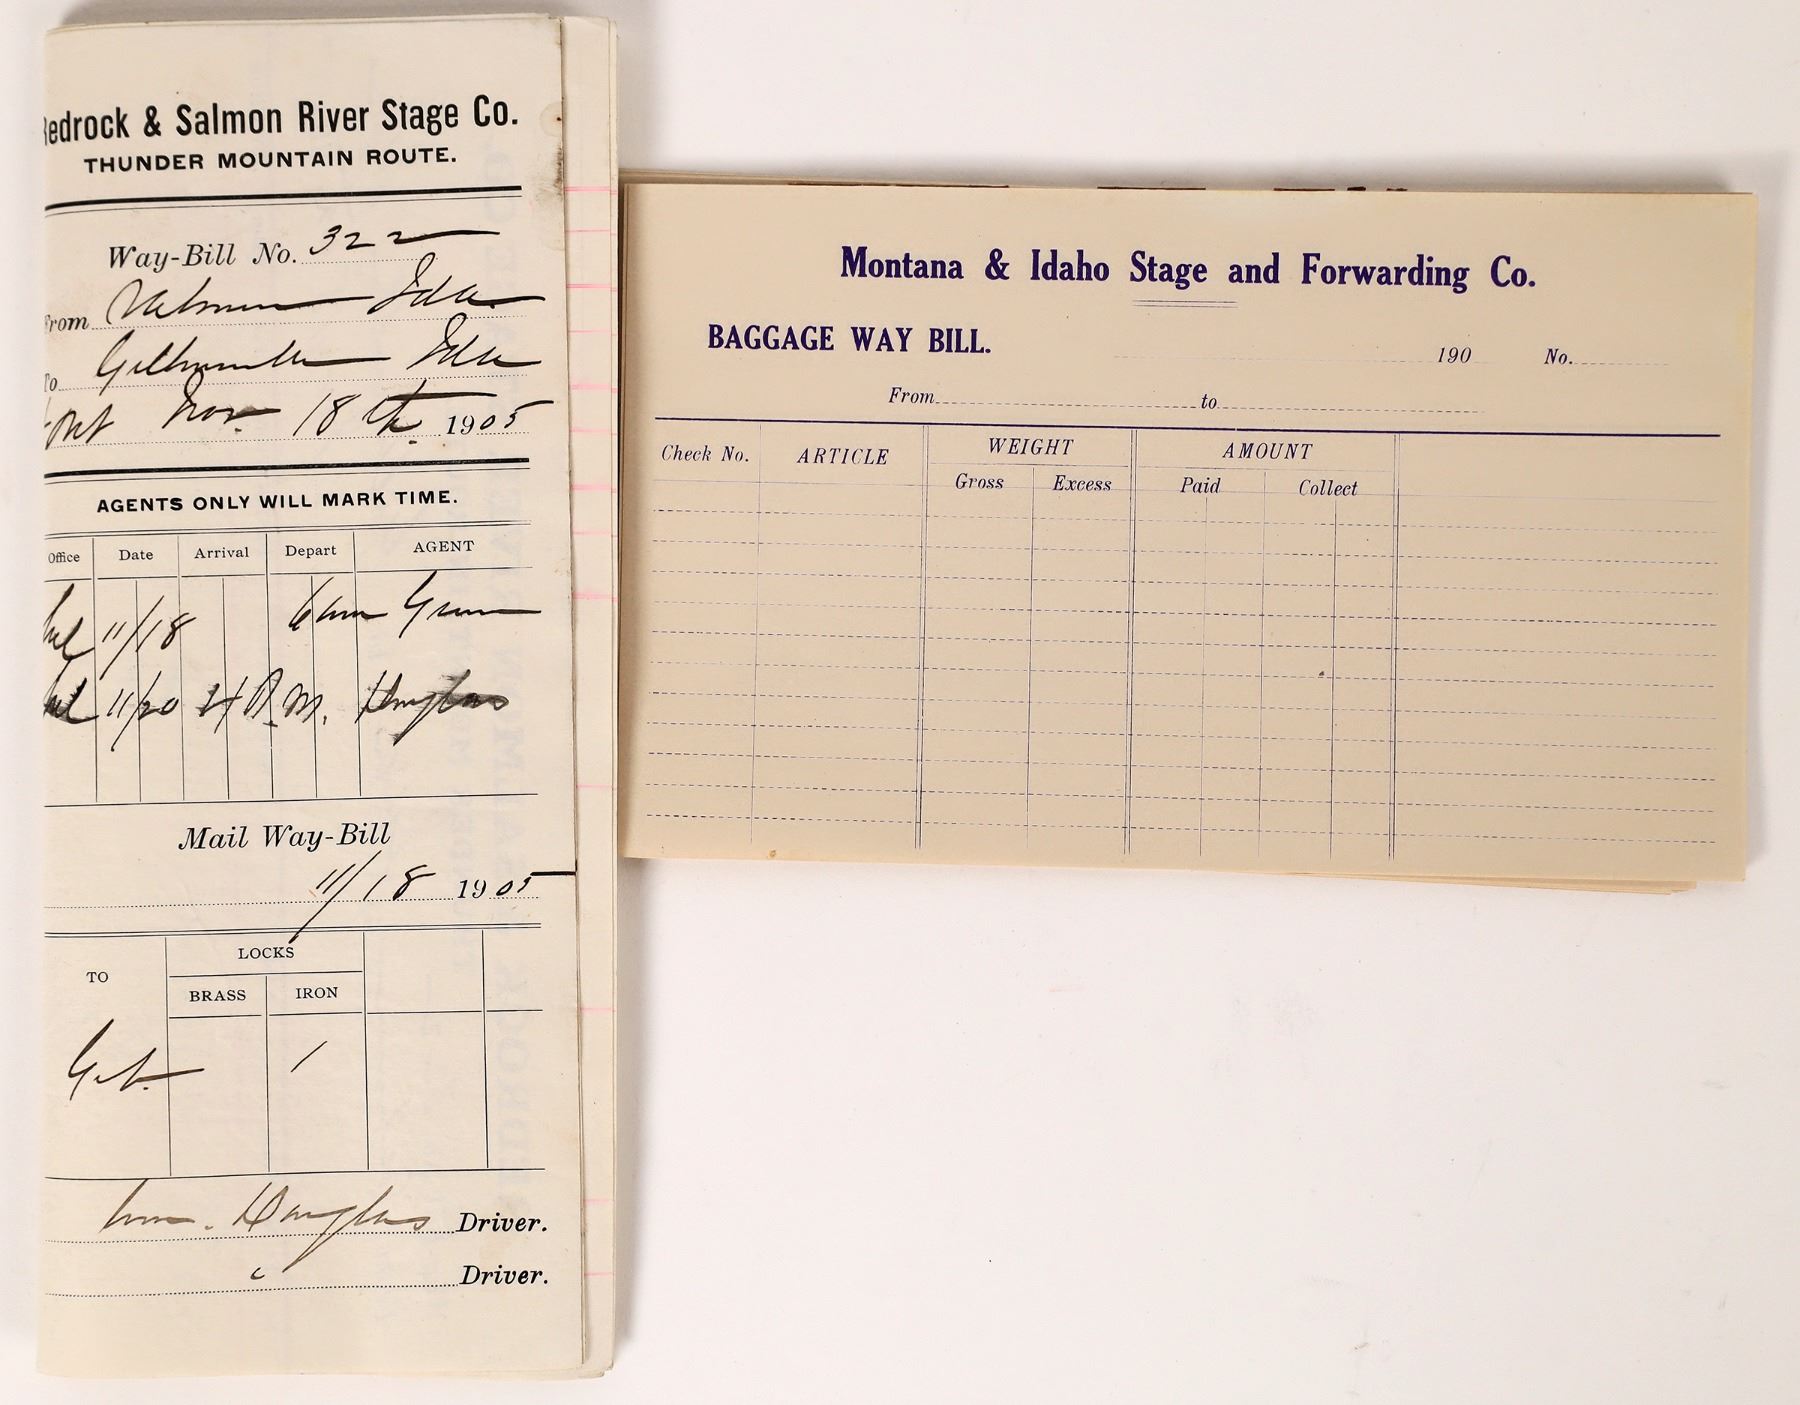 Redrock & Salmon River Stage Co.
THUNDER MOUNTAIN ROUTE.
Way-Bill No. 322
From Salmon Ida
To Gibbonsville Ida
Nov. 18th. 1905
AGENTS ONLY WILL MARK TIME.
Office Date Arrival Depart AGENT
11/18 6 am
11/20 4 P.M. Douglas
Mail Way-Bill
11/18 1905
TO LOCKS
BRASS IRON
Gib. 1
Wm. Douglas Driver.
Driver.
Montana & Idaho Stage and Forwarding Co.
BAGGAGE WAY BILL. 190 No.
From to
Check No. ARTICLE WEIGHT AMOUNT
Gross Excess Paid Collect